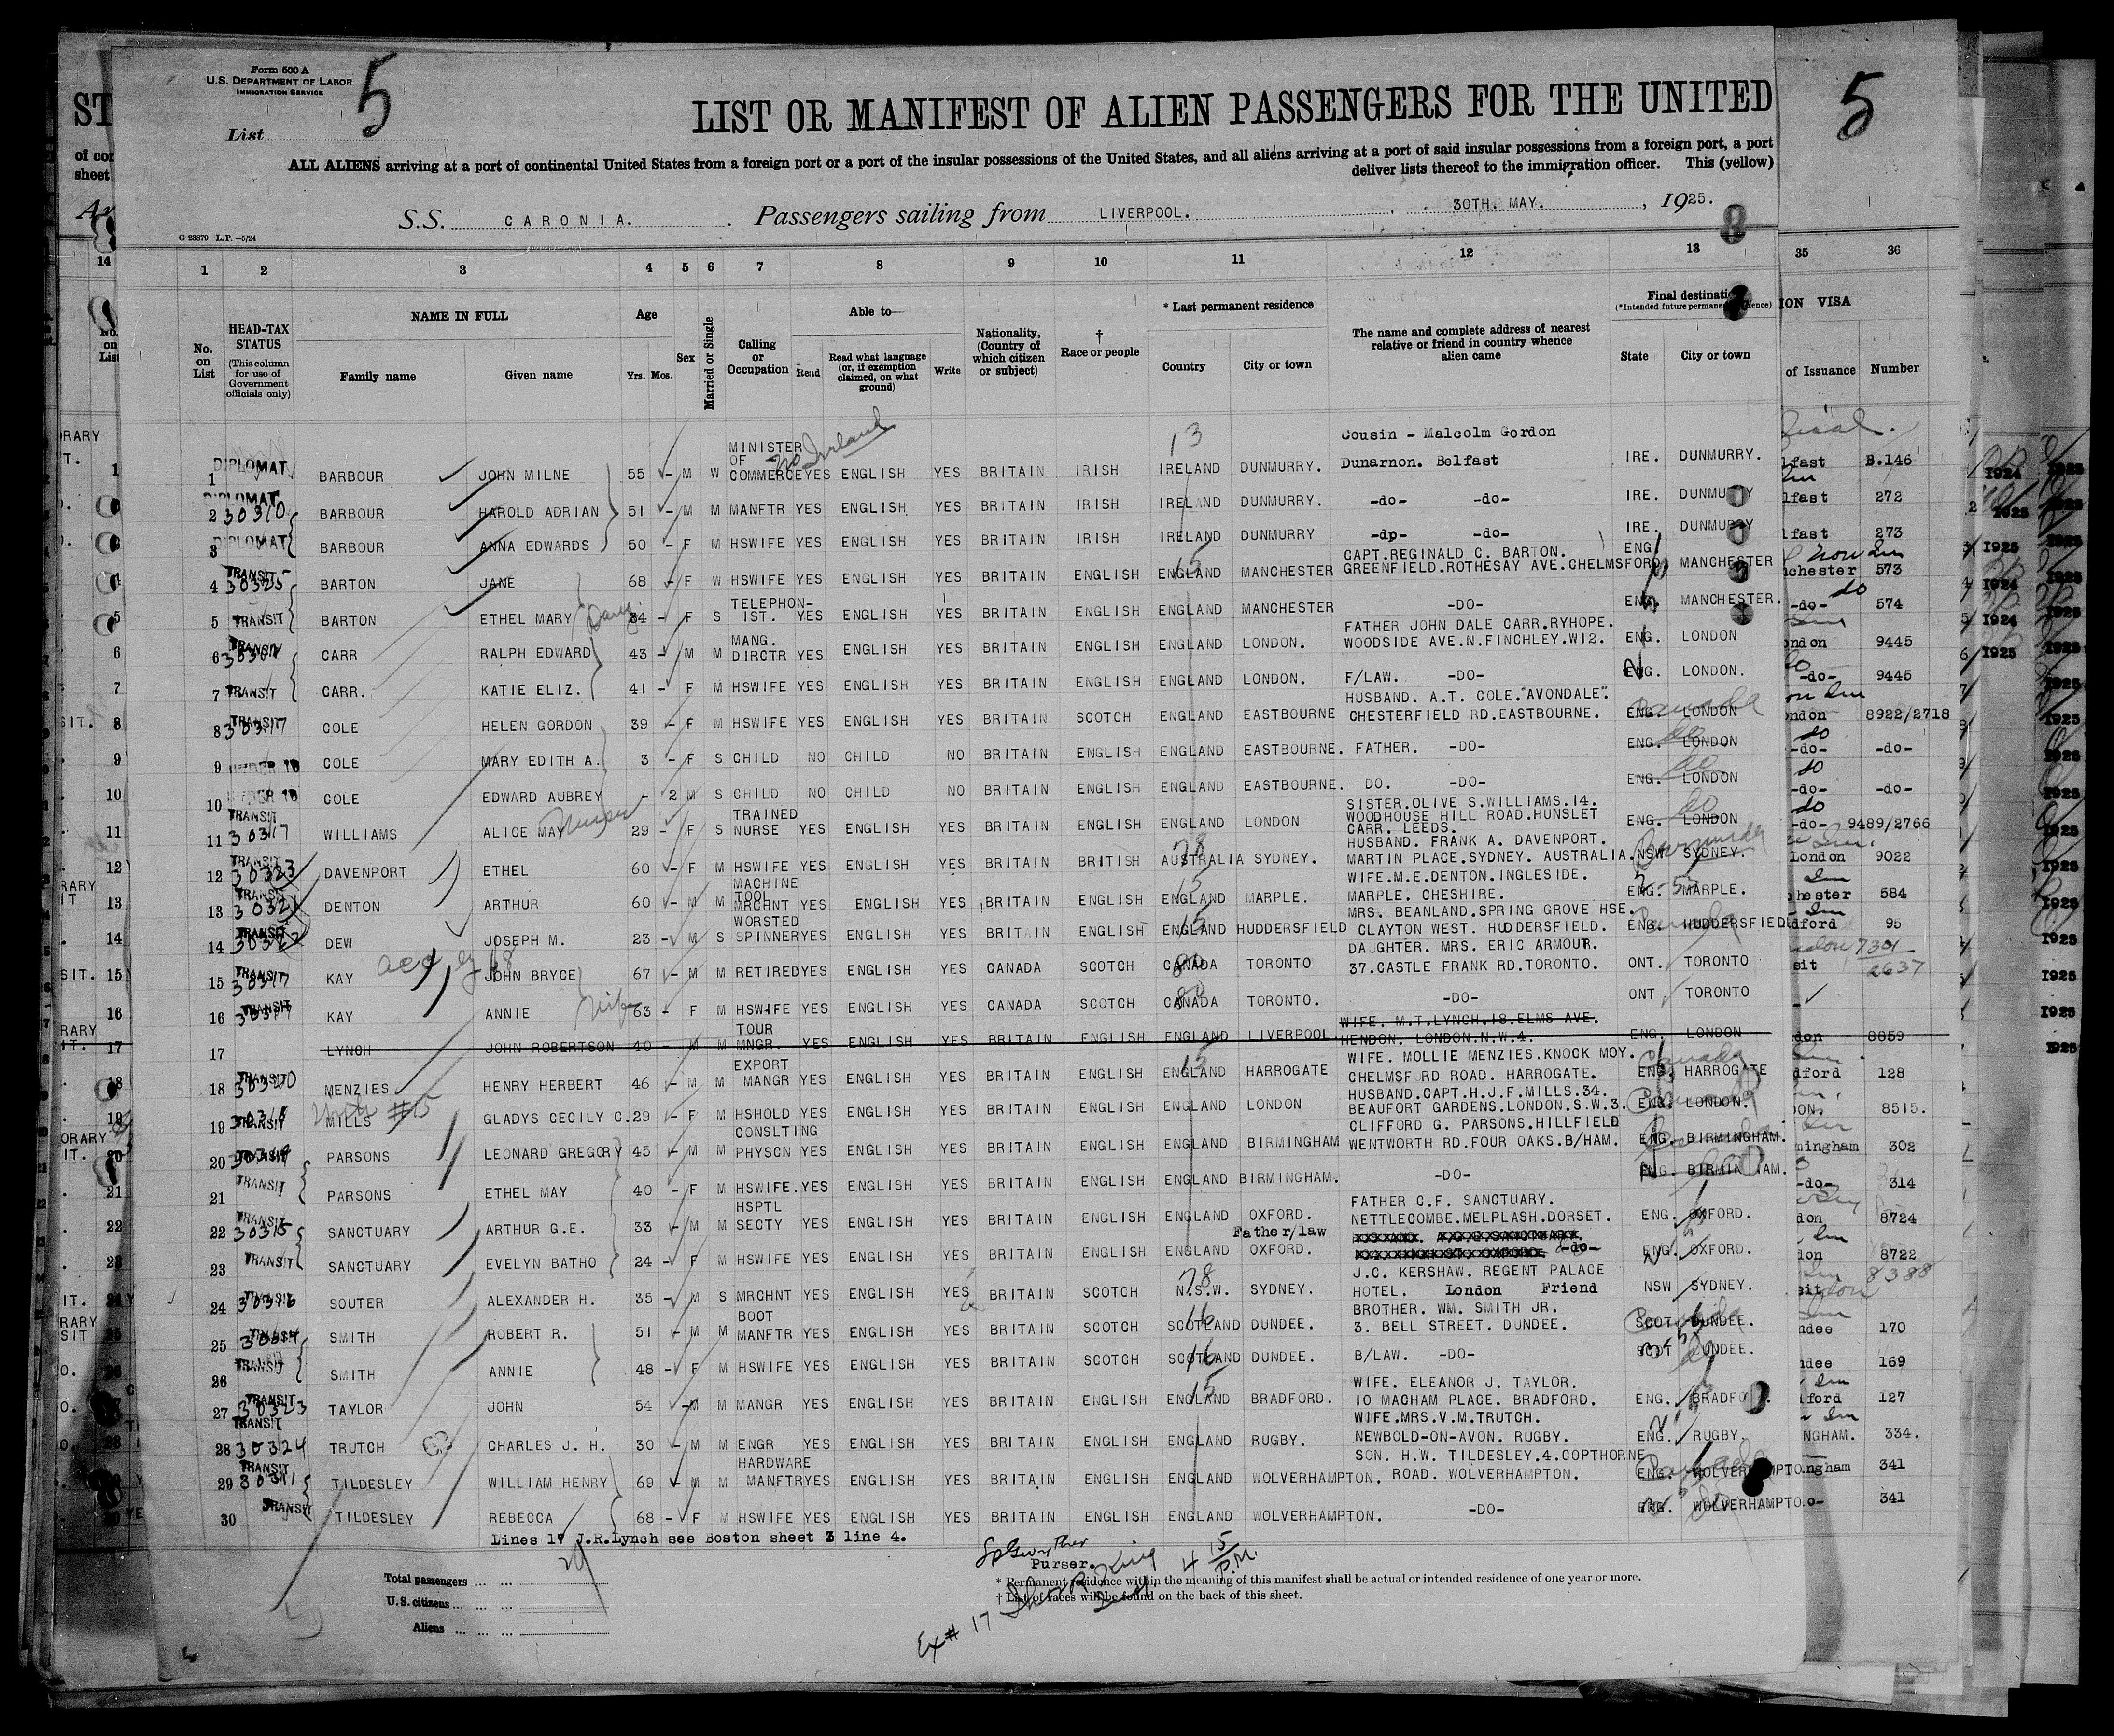 Form 500 A
U.S. DEPARTMENT OF LABOR
IMMIGRATION SERVICE
List 5
5
LIST OR MANIFEST OF ALIEN PASSENGERS FOR THE UNITED
ALL ALIENS arriving at a port of continental United States from a foreign port or a port of the insular possessions of the United States, and all aliens arriving at a port of said insular possessions from a foreign port, a port
deliver lists thereof to the immigration officer. This (yellow)
S.S. CARONIA. Passengers sailing from LIVERPOOL. 30TH. MAY. , 1925.
G 23879 L.P.—5/24
14 1 2 3 4 5 6 7 8 9 10 11 12 13 35 36
No. on List
HEAD-TAX STATUS
(This column for use of Government officials only)
NAME IN FULL
Family name Given name
Age
Yrs. Mos.
Sex
Married or Single
Calling or Occupation
Able to—
Read
Read what language (or, if exemption claimed, on what ground)
Write
Nationality, (Country of which citizen or subject)
† Race or people
* Last permanent residence
Country City or town
The name and complete address of nearest relative or friend in country whence alien came
Final destination
(*Intended future permanent residence)
State City or town
ION VISA
of Issuance Number
1 DIPLOMAT BARBOUR JOHN MILNE 55 - M W MINISTER OF COMMERCE YES ENGLISH YES BRITAIN IRISH IRELAND DUNMURRY. Cousin - Malcolm Gordon Dunarnon. Belfast IRE. DUNMURRY. lfast B.146
2 DIPLOMAT 30310 BARBOUR HAROLD ADRIAN 51 - M M MANFTR YES ENGLISH YES BRITAIN IRISH IRELAND DUNMURRY. -do- -do- IRE. DUNMURRY lfast 272
3 DIPLOMAT BARBOUR ANNA EDWARDS 50 - F M HSWIFE YES ENGLISH YES BRITAIN IRISH IRELAND DUNMURRY -dp- -do- IRE. DUNMURRY lfast 273
4 TRANSIT 30325 BARTON JANE 68 - F W HSWIFE YES ENGLISH YES BRITAIN ENGLISH ENGLAND MANCHESTER CAPT.REGINALD C. BARTON. GREENFIELD.ROTHESAY AVE.CHELMSFORD ENG. MANCHESTER chester 573
5 TRANSIT BARTON ETHEL MARY 34 - F S TELEPHON-IST. YES ENGLISH YES BRITAIN ENGLISH ENGLAND MANCHESTER -DO- ENG. MANCHESTER. -do- 574
6 TRANSIT CARR RALPH EDWARD 43 - M M MANG. DIRCTR YES ENGLISH YES BRITAIN ENGLISH ENGLAND LONDON. FATHER JOHN DALE CARR.RYHOPE. WOODSIDE AVE.N.FINCHLEY.W12. ENG. LONDON ondon 9445
7 TRANSIT CARR. KATIE ELIZ. 41 - F M HSWIFE YES ENGLISH YES BRITAIN ENGLISH ENGLAND LONDON. F/LAW. -DO- ENG. LONDON. -do- 9445
8 TRANSIT 30317 COLE HELEN GORDON 39 - F M HSWIFE YES ENGLISH YES BRITAIN SCOTCH ENGLAND EASTBOURNE HUSBAND. A.T. COLE."AVONDALE". CHESTERFIELD RD.EASTBOURNE. ENG. LONDON ondon 8922/2718
9 UNDER 16 COLE MARY EDITH A. 3 - F S CHILD NO CHILD NO BRITAIN ENGLISH ENGLAND EASTBOURNE. FATHER. -DO- ENG. LONDON -do- -do-
10 COLE EDWARD AUBREY - 2 M S CHILD NO CHILD NO BRITAIN ENGLISH ENGLAND EASTBOURNE. DO. -DO- ENG. LONDON -do- -do-
11 TRANSIT 30317 WILLIAMS ALICE MAY Nurse 29 - F S TRAINED NURSE YES ENGLISH YES BRITAIN ENGLISH ENGLAND LONDON SISTER.OLIVE S.WILLIAMS.14. WOODHOUSE HILL ROAD.HUNSLET CARR. LEEDS. ENG. LONDON -do- 9489/2766
12 TRANSIT 30323 DAVENPORT ETHEL 60 - F M HSWIFE YES ENGLISH YES BRITAIN BRITISH AUSTRALIA SYDNEY. HUSBAND. FRANK A. DAVENPORT. MARTIN PLACE.SYDNEY. AUSTRALIA. NSW SYDNEY. London 9022
13 TRANSIT 30321 DENTON ARTHUR 60 - M M MACHINE TOOL MRCHNT YES ENGLISH YES BRITAIN ENGLISH ENGLAND MARPLE. WIFE.M.E.DENTON.INGLESIDE. MARPLE. CHESHIRE. ENG. MARPLE. chester 584
14 TRANSIT DEW JOSEPH M. 23 - M S WORSTED SPINNER YES ENGLISH YES BRITAIN ENGLISH ENGLAND HUDDERSFIELD MRS. BEANLAND.SPRING GROVE HSE. CLAYTON WEST. HUDDERSFIELD. ENG. HUDDERSFIELD dford 95
15 TRANSIT 30317 KAY JOHN BRYCE 67 - M M RETIRED YES ENGLISH YES CANADA SCOTCH CANADA TORONTO DAUGHTER. MRS. ERIC ARMOUR. 37.CASTLE FRANK RD.TORONTO. ONT. TORONTO sit 7301 2637
16 TRANSIT KAY ANNIE Wife 63 - F M HSWIFE YES ENGLISH YES CANADA SCOTCH CANADA TORONTO. -DO- ONT TORONTO
17 LYNCH JOHN ROBERTSON 40 - M M TOUR MNGR. YES ENGLISH YES BRITAIN ENGLISH ENGLAND LIVERPOOL. WIFE. M.T.LYNCH.18.ELMS AVE. HENDON. LONDON.N.W.4. ENG. LONDON don 8859
18 TRANSIT 30320 MENZIES HENRY HERBERT 46 - M M EXPORT MANGR YES ENGLISH YES BRITAIN ENGLISH ENGLAND HARROGATE WIFE. MOLLIE MENZIES.KNOCK MOY. CHELMSFORD ROAD. HARROGATE. ENG. HARROGATE dford 128
19 TRANSIT 30318 MILLS GLADYS CECILY C. 29 - F M HSHOLD YES ENGLISH YES BRITAIN ENGLISH ENGLAND LONDON HUSBAND.CAPT.H.J.F.MILLS.34. BEAUFORT GARDENS.LONDON.S.W.3. ENG. LONDON. DON. 8515.
20 TRANSIT PARSONS LEONARD GREGORY 45 - M M CONSLTING PHYSCN YES ENGLISH YES BRITAIN ENGLISH ENGLAND BIRMINGHAM CLIFFORD G. PARSONS.HILLFIELD WENTWORTH RD.FOUR OAKS.B/HAM. ENG. BIRMINGHAM. mingham 302
21 TRANSIT PARSONS ETHEL MAY 40 - F M HSWIFE. YES ENGLISH YES BRITAIN ENGLISH ENGLAND BIRMINGHAM. -DO- ENG. BIRMINGHAM. -do- 314
22 TRANSIT 30315 SANCTUARY ARTHUR G.E. 33 - M M HSPTL SECTY YES ENGLISH YES BRITAIN ENGLISH ENGLAND OXFORD. FATHER C.F. SANCTUARY. NETTLECOMBE.MELPLASH.DORSET. ENG. OXFORD. don 8724
23 TRANSIT SANCTUARY EVELYN BATHO 24 - F M HSWIFE YES ENGLISH YES BRITAIN ENGLISH ENGLAND OXFORD. Father/law -do- ENG. OXFORD. don 8722
24 TRANSIT 30316 SOUTER ALEXANDER H. 35 - M S MRCHNT YES ENGLISH YES BRITAIN SCOTCH N.S.W. SYDNEY. J.C. KERSHAW. REGENT PALACE HOTEL. London Friend NSW SYDNEY. sit 8388
25 SMITH ROBERT R. 51 - M M BOOT MANFTR YES ENGLISH YES BRITAIN SCOTCH SCOTLAND DUNDEE. BROTHER. WM. SMITH JR. 3. BELL STREET. DUNDEE. SCOT. DUNDEE. ndee 170
26 TRANSIT SMITH ANNIE 48 - F M HSWIFE YES ENGLISH YES BRITAIN SCOTCH SCOTLAND DUNDEE. B/LAW. -DO- SCOT DUNDEE. ndee 169
27 TRANSIT TAYLOR JOHN 54 - M M MANGR YES ENGLISH YES BRITAIN ENGLISH ENGLAND BRADFORD. WIFE. ELEANOR J. TAYLOR. 10 MACHAM PLACE. BRADFORD. ENG. BRADFORD. dford 127
28 TRANSIT 30324 TRUTCH CHARLES J. H. 30 - M M ENGR YES ENGLISH YES BRITAIN ENGLISH ENGLAND RUGBY. WIFE.MRS.V.M.TRUTCH. NEWBOLD-ON-AVON. RUGBY. ENG. RUGBY. NGHAM. 334.
29 TRANSIT 30311 TILDESLEY WILLIAM HENRY 69 - M M HARDWARE MANFTR YES ENGLISH YES BRITAIN ENGLISH ENGLAND WOLVERHAMPTON. SON. H.W. TILDESLEY.4.COPTHORNE ROAD. WOLVERHAMPTON. ENG. WOLVERHAMPTO ngham 341
30 TRANSIT TILDESLEY REBECCA 68 - F M HSWIFE YES ENGLISH YES BRITAIN ENGLISH ENGLAND WOLVERHAMPTON. -DO- ENG. WOLVERHAMPTO. o- 341
Lines 17 J.R.Lynch see Boston sheet 3 line 4.
Purser.
Total passengers
U.S. citizens
Aliens
* Permanent residence within the meaning of this manifest shall be actual or intended residence of one year or more.
† List of races will be found on the back of this sheet.
Ex # 17
4 15/ P.M.